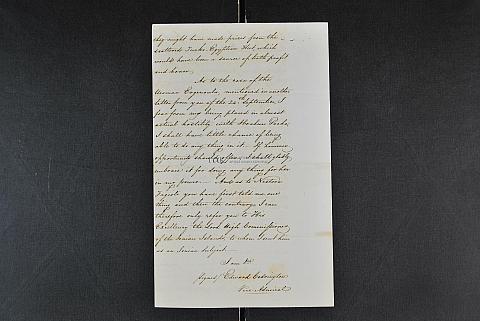 they might have made prizes from the
scattered Turko Egyptian Fleet, which
would have been a source of both profit
and honor.
As to the case of the
Woman mentioned in another
letter from you of the 24th September, I
fear from my being placed in almost
actual hostility with Ibrahim Pacha,
I shall have little chance of being
able to do any thing in it. If however
opportunity should offer, I shall gladly
embrace it for doing any thing for her
in my power. And as to Nestore
you have first told me one
thing and then the contrary I can
therefore only refer you to His
Excellency the Lord High Commissioner
of the Ionian Islands, to whom I sent him
as an Ionian Subject.
I am &c
signed/ Edward Codrington
Vice Admiral